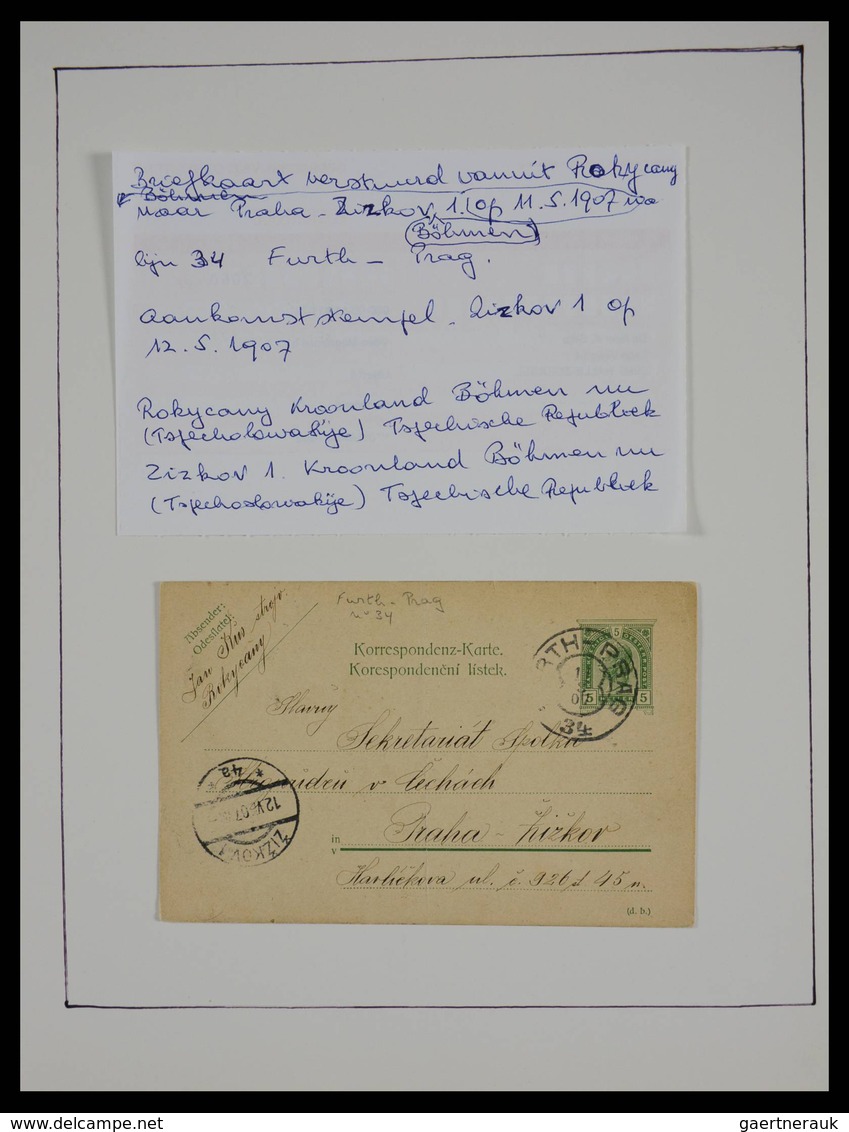 Briefkaart verstuurd vanuit Rokycany
Böhmen
naar Praha - Zizkov 1. (op 11.5.1907 via
(Böhmen)
lijn 34 Furth - Prag.
Aankomststempel - Zizkov 1 op
12.5.1907
Rokycany Kroonland Böhmen nu
(Tsjecholowakije) Tsjechische Republiek
Zizkov 1. Kroonland Böhmen nu
(Tsjechoslowakije) Tsjechische Republiek
Absender:
Odesílatel:
Jan Kus strojv.
Rokycany
Furth - Prag
nº 34
Korrespondenz-Karte.
Korespondenční lístek.
5
5 5
RTH-PRAG
34
Slavný
Sekretariát Spolku
v Čechách
in
v
Praha - Žižkov
Havlíčkova ul. č. 926
(d. b.)
* 4a *
12.V.07
ŽIŽKOV 1
delcampe.net
gaertnerauk